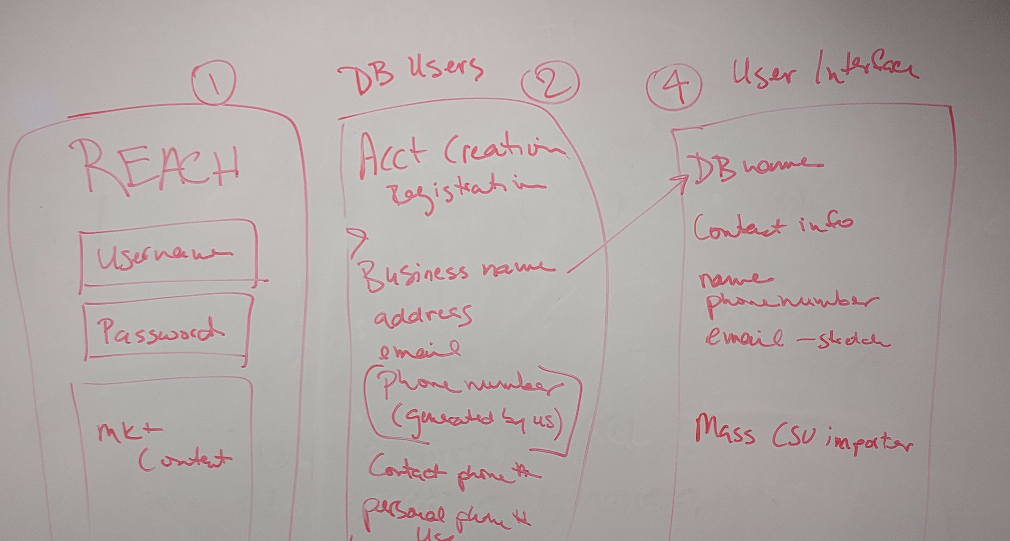 1
REACH
Username
Password
mkt
Content
DB Users
2
Acct Creation
Registration
Business name
address
email
phone number
(generated by us)
Contact phone #
personal phone #
4
User Interface
DB name
Contact info
name
phone number
email -
Mass CSV importer